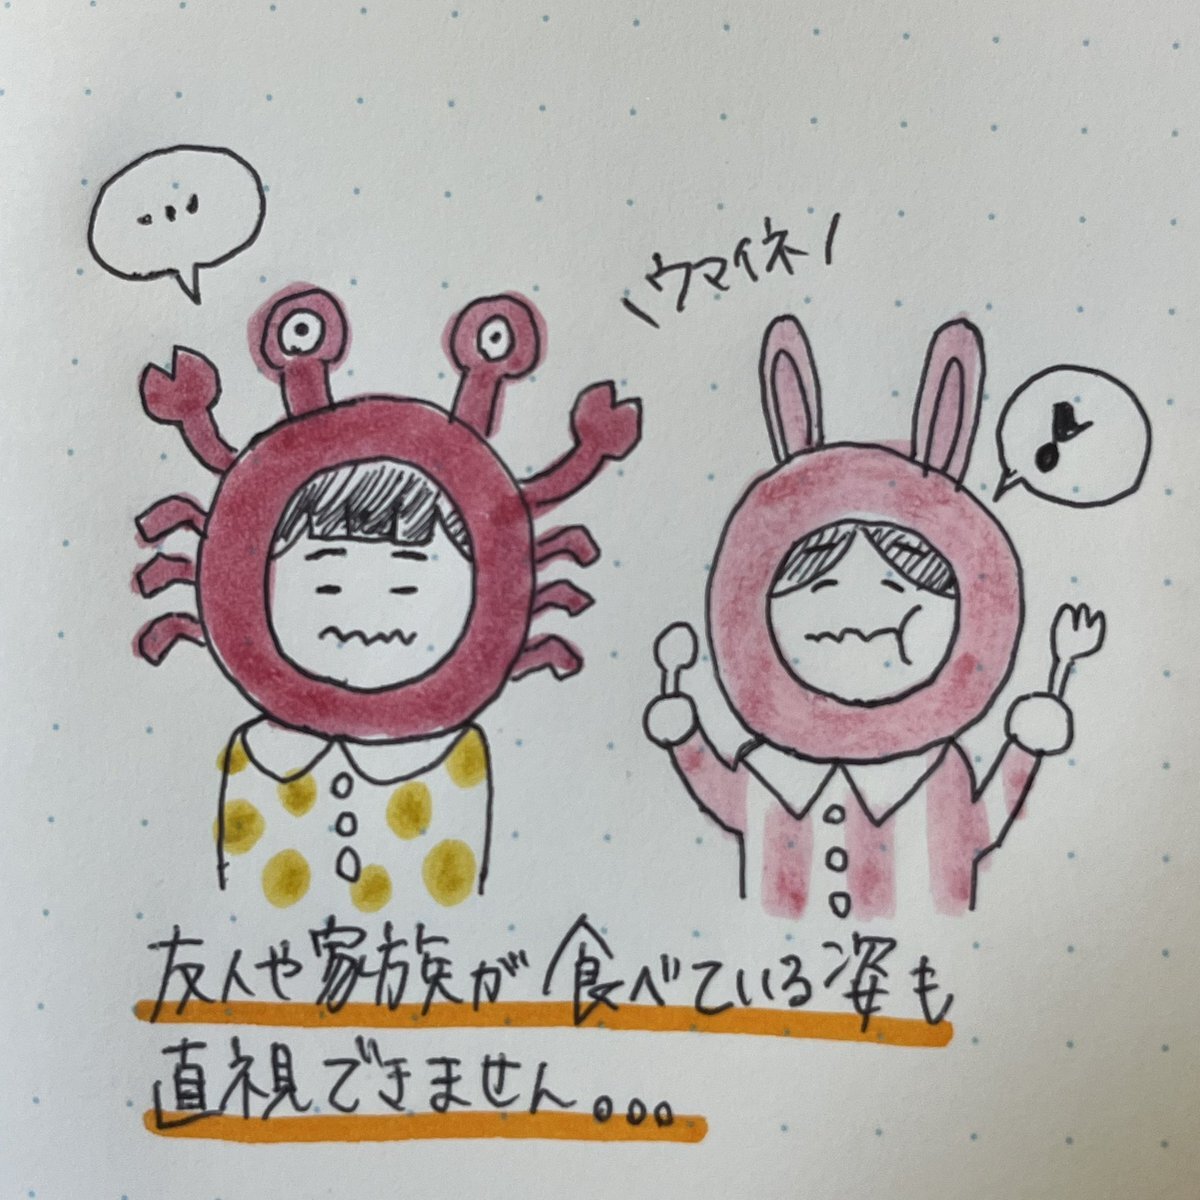 ...
ウマイネ
友人や家族が食べている姿も
直視できません。。。